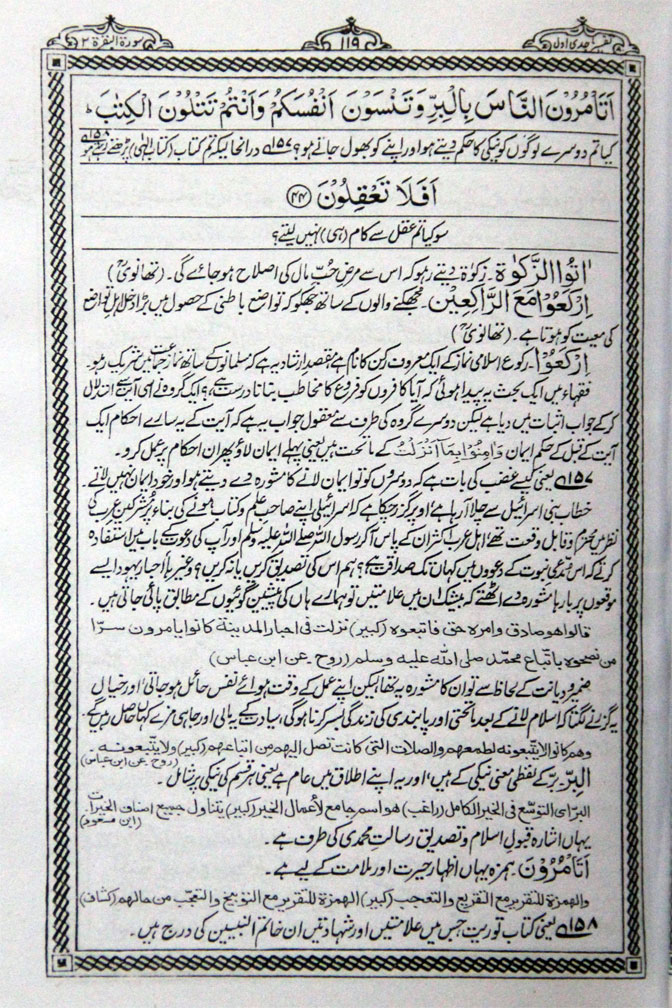 تفسیر ماجدی اول ۱۱۹ سورۃ البقرۃ ۲
اَتَاْمُرُوْنَ النَّاسَ بِالْبِرِّ وَتَنْسَوْنَ اَنْفُسَكُمْ وَاَنْتُمْ تَتْلُوْنَ الْكِتٰبَ ط
کیا تم دوسرے لوگوں کو نیکی کا حکم دیتے ہو اور اپنے کو بھول جاتے ہو؟ ۱۵۷ درانحالیکہ تم کتاب (کتاب الٰہی) پڑھتے رہتے ہو ۱۵۸
اَفَلَا تَعْقِلُوْنَ (۴۴)
سو کیا تم عقل سے کام (ہی) نہیں لیتے؟
اٰتُوا الزَّكٰوةَ۔ زکوٰۃ دیتے رہو کہ اس سے مرض حبِّ مال کی اصلاح ہو جائے گی۔ (تھانویؒ)
اِرْكَعُوْا مَعَ الرَّاكِعِيْن۔ جھکنے والوں کے ساتھ جھکو کہ تواضع باطنی کے حصول میں بڑا دخل اہل تواضع
کی معیت کو ہوتا ہے۔ (تھانویؒ)
اِرْكَعُوْا۔ رکوع اسلامی نماز کے ایک معروف رکن کا نام ہے مقصد ارشاد یہ ہے کہ مسلمانوں کے ساتھ نماز جماعت میں شریک رہو۔
فقہاء میں ایک بحث یہ پیدا ہوئی کہ آیا کافروں کو فروع کا مخاطب بتانا درست ہے؟ ایک گروہ نے اسی آیت سے استدلال
کر کے جواب اثبات میں دیا ہے لیکن دوسرے گروہ کی طرف سے معقول جواب یہ ہے کہ آیت کے یہ سارے احکام ایک
آیت کے قبل کے حکم ایمان وَاٰمِنُوْا بِمَا اَنْزَلْتُ کے ماتحت ہیں یعنی پہلے ایمان لاؤ پھر ان احکام پر عمل کرو۔
۱۵۷ یعنی کیسے غضب کی بات ہے کہ دوسروں کو تو ایمان لانے کا مشورہ دے دیتے ہو اور خود ایمان نہیں لاتے
خطاب بنی اسرائیل سے چلا آرہا ہے اوپر گزر چکا ہے کہ اسرائیلی اپنے صاحب علم و کتاب ہونے کی بناء پر مشرکین عرب کی
نظر میں محترم و قابل وقعت تھے اہل عرب اکثر ان کے پاس آکر رسول اللہ صلی اللہ علیہ وسلم اور آپ کی دعوے کے باب میں استفادہ
کرتے کہ اس مدعی نبوت کے دعووں میں کہاں تک صداقت ہے؟ ہم اس کی تصدیق کریں یا نہ کریں؟ وغیرہا احبار یہود ایسے
موقعوں پر بارہا مشورہ دے اٹھتے کہ بیشک ان میں علامتیں تو ہمارے ہاں کی پیشین گوئیوں کے مطابق پائی جاتی ہیں۔
قالوا هو صادق وامره حق فاتبعوه (کبیر) نزلت فی احبار المدینة کانوا یامرون سرّا
من نصحوه باتباع محمّد صلی الله علیه وسلم (روح۔ عن ابن عباس)
ضمیر و دیانت کے لحاظ سے تو ان کا مشورہ یہ تھا لیکن اپنے عمل کے وقت ہوائے نفس حائل ہو جاتی اور خیال
یہ گزرنے لگتا کہ اسلام لانے کے بعد ماتحتی اور پابندی کی زندگی بسر کرنا ہوگی، سیادت کے یہ مالی اور جاہی مزے کہاں حاصل رہیں گے۔
وهم کانوا لا یتبعونه لطمعهم والصلات التی کانت تصل الیهم من اتباعهم (کبیر) ولا یتبعونه۔
(روح عن ابن عباس)
اَلْبِرّ۔ بِرّ کے لفظی معنی نیکی کے ہیں، اور یہ اپنے اطلاق میں عام ہے یعنی ہر قسم کی نیکی پر شامل۔
البرّ ای التوسّع فی الخیر الکامل (راغب) هو اسم جامع لأعمال الخیر (کبیر) یتناول جمیع اصناف الخیرات۔
(ابن مسعود)
یہاں اشارہ قبول اسلام و تصدیق رسالت محمدی کی طرف ہے۔
اَتَاْمُرُوْنَ۔ ہمزہ یہاں اظہار حیرت اور ملامت کے لیے ہے۔
والهمزة للتقریر مع التقریع والتعجب (کبیر) الهمزة للتقریر مع التوبیخ والتعجّب من حالهم (کشاف)
۱۵۸ یعنی کتاب توریت جس میں علامتیں اور شہادتیں ان خاتم النبیین کی درج ہیں۔